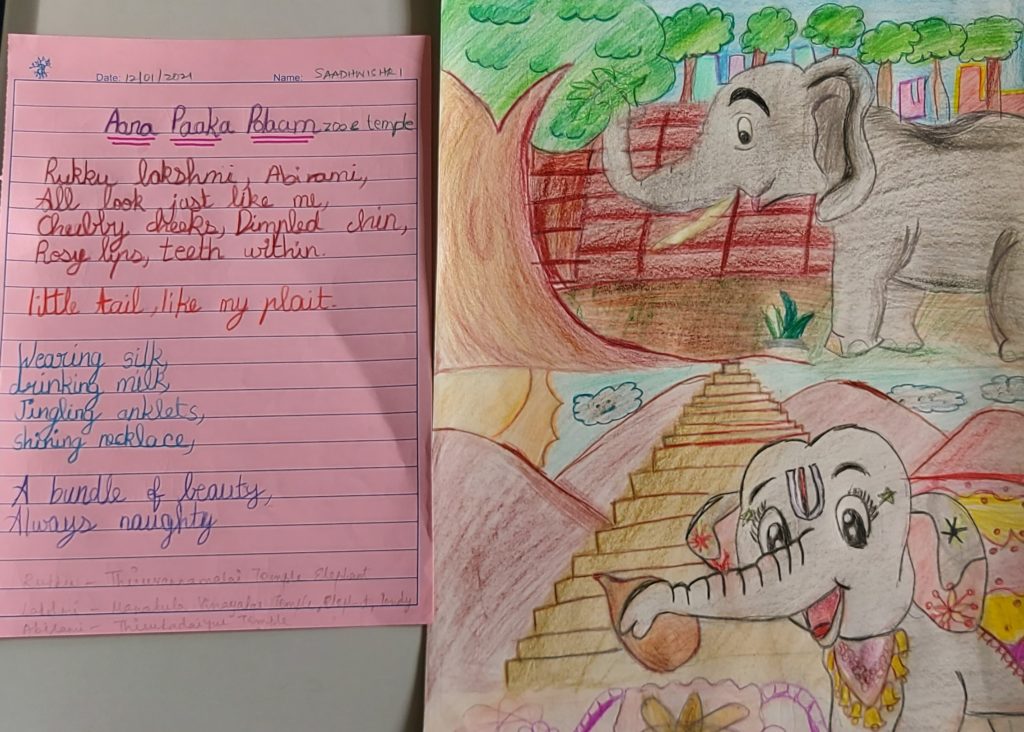 Date: 12/01/2021 Name: SAADHWISHRI
Aana Paaka Polaam zoo & temple
Rukku lakshmi, Abirami,
All look just like me,
Chubby cheeks, Dimpled chin,
Rosy lips, teeth within.
little tail, like my plait.
Wearing silk,
drinking milk,
Jingling anklets,
shining necklace,
A bundle of beauty,
Always naughty
Rukku - Thiruvannamalai Temple Elephant
Lakshmi - Manakula Vinayagar Temple, Elephant, Pondy
Abirami - Thirukadaiyur Temple